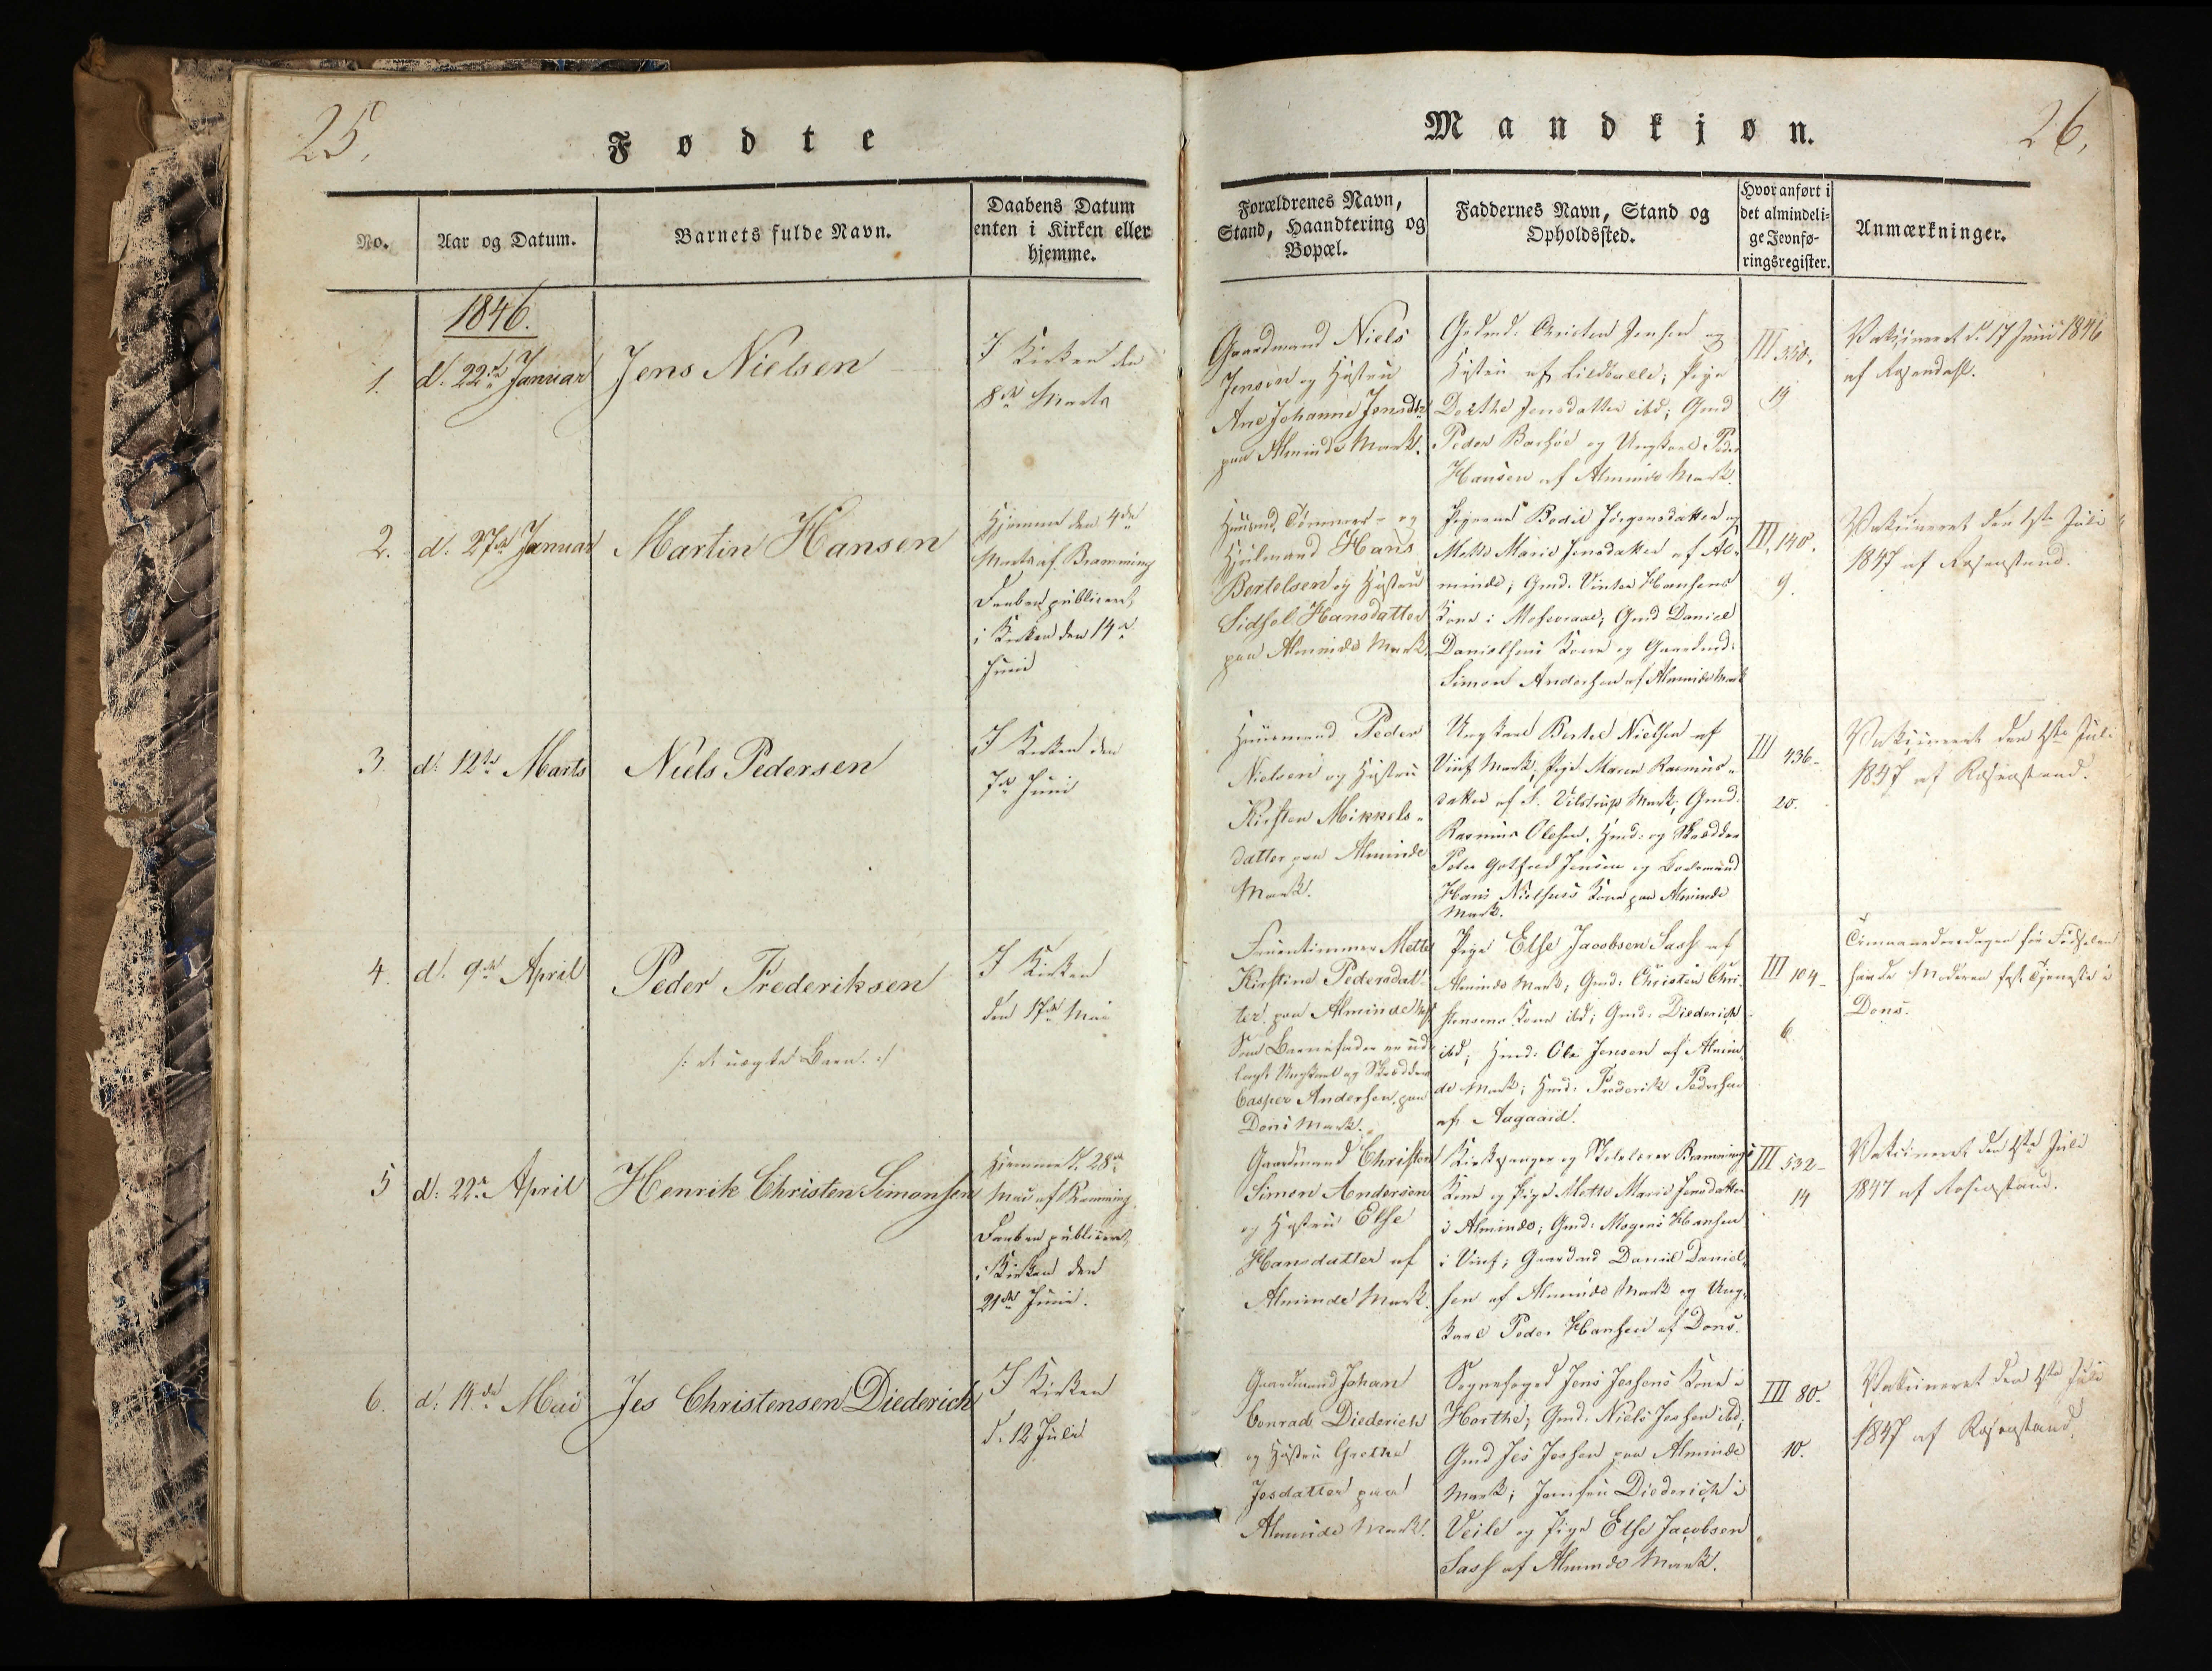 25.
Fødte
No.
Aar og Datum.
Barnets fulde Navn.
Daabens Datum
enten i Kirken eller
hjemme.
1846.
1.
d. 22de Januar
Jens Nielsen
I Kirken den
8de Marts
2.
d. 27de Januar
Martin Hansen
Hjemme den 4de
Marts af Bramming
Daaben publiceret
i Kirken den 14de
Juni
3.
d. 12te Marts
Niels Pedersen
I Kirken den
7de Juni
4.
d. 9de April
Peder Frederiksen
/: et uægte Barn. :/
I Kirken
den 17de Mai
5
d. 22de April
Henrik Christen Simonsen
Hjemme d. 28de
Mai af Bramming
Daaben publiceret
i Kirken den
21de Juni.
6.
d. 14de Mai
Jes Christensen Diederich
I Kirken
d. 12 Juli
26.
Mandkjøn.
Forældrenes Navn,
Stand, Haandtering og
Bopæl.
Faddernes Navn, Stand og
Opholdssted.
Hvor anført i
det almindeli-
ge Jevnfø-
ringsregister.
Anmærkninger.
Gaardmand Niels
Jensen og Hustru
Ane Johanne Jensdtr
paa Alminde Mark.
Grdmd. Christen Jensen og
Hustru af Lildballe; Pige
Dorthe Jensdatter ibd; Gmd
Peder Barsøe og Ungkarl Peder
Hansen af Alminde Mark.
III 350.
19
Vakcineret d. 17 Juni 1846
af Rosendahl.
Huusmd, Tømmer- og
Hjulmand Hans
Bertelsen og Hustru
Sidsel Hansdatter
paa Alminde Mark.
Pigerne Bodil Jørgensdatter og
Mette Marie Jensdatter af Al-
minde; Gmd. Vinter Hansens
Kone i Mosevraae; Gmd Daniel
Danielsens Kone og Gaardmd:
Simon Andersen af Alminde Mark
III, 140.
9.
Vakcineret den 1ste Juli
1847 af Rosenstand.
Huusmand Peder
Nielsen og Hustru
Kirsten Mikkels-
datter paa Alminde
Mark.
Ungkarl Bertel Nielsen af
Viuf Mark; Pige Maren Rasmus-
datter af S. Vilstrup Mark; Gmd.
Rasmus Olesen, Hmd: og Skrædder
Peter Gotfred Jensen og
Hans Nielsens Kone paa Alminde
Mark.
III 436-
20.
Vakcineret den 1ste Juli
1847 af Rosenstand.
Fruentimmer Mette
Kirstine Pedersdat-
ter paa Alminde Mk
Som Barnefader er ud-
lagt Ungkarl og Skrædder
Casper Andersen paa
Dons Mark.
Pige Else Jacobsen Sass af
Alminde Mark; Gmd: Christen Chri-
stensens Kone ibd; Gmd: Diederich
ibd; Hmd: Ole Jensen af Almin-
de Mark; Hmd: Frederik Pedersen
af Aagaard.
III 104-
6
Timaanedersdagen før Fødselen
havde Moderen fast Tjeneste i
Dons.
Gaardmand Christen
Simon Andersen
og Hustru Else
Hansdatter af
Alminde Mark.
Kirkesanger og Skolelærer Brammings
Kone og Pige Mette Marie Jensdatter
i Alminde; Gmd: Mogens Hansen
i Viuf; Gaardmd Daniel Daniel-
sen af Alminde Mark og Ung-
karl Peder Hansen af Dons.
III 532-
14
Vakcineret den 1ste Juli
1847 af Rosenstand.
Gaardmand Johan
Conrad Diederich
og Hustru Grethe
Jesdatter paa
Alminde Mark.
Sognefoged Jens Jessens Kone i
Harthe; Gmd: Niels Jessen ibd;
Gmd Jes Jessen paa Alminde
Mark; Jomfru Diederich i
Veile og Pige Else Jacobsen
Sass af Alminde Mark.
III 80.
10.
Vakcineret den 1ste Juli
1847 af Rosenstand.